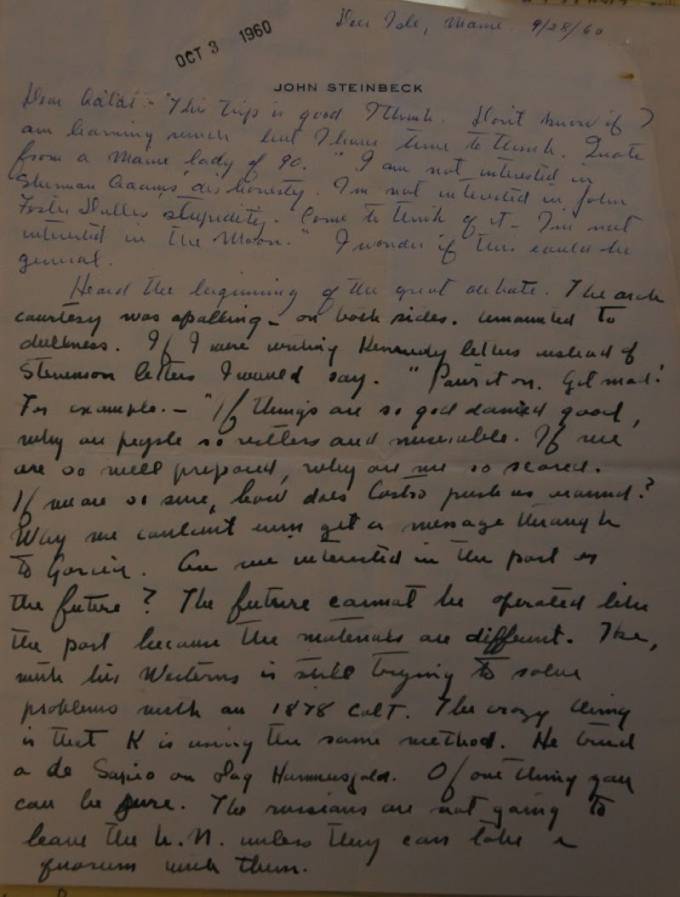 OCT 3 1960
Deer Isle, Maine 9/28/60
JOHN STEINBECK
Dear :- This trip is good I think. Don't know if I
am learning much but I have time to think. Quote
from a Maine lady of 90. "I am not interested in
Sherman Adams' dishonesty. I'm not interested in John
Foster Dulles stupidity. Come to think of it - I'm not
interested in the Moon." I wonder if this could be
general.
Heard the beginning of the great debate. The
courtesy was apalling - on both sides. amounted to
dullness. If I were writing Kennedy letters instead of
Stevenson letters I would say. "Pour it on. Get mad!
For example. - "If things are so god damned good,
why are people so restless and miserable. If we
are so well prepared, why are we so scared.
If we are so sure, how does Castro push us around?
Why we couldn't even get a message through
to Garcia. Are we interested in the past or
the future? The future cannot be operated like
the past because the materials are different. Ike,
with his Westerns is still trying to solve
problems with an 1878 Colt. The crazy thing
is that K is using the same method. He tried
a de Sapio on Dag Hammersjold. Of one thing you
can be sure. The russians are not going to
leave the U.N. unless they can take a
quorum with them.